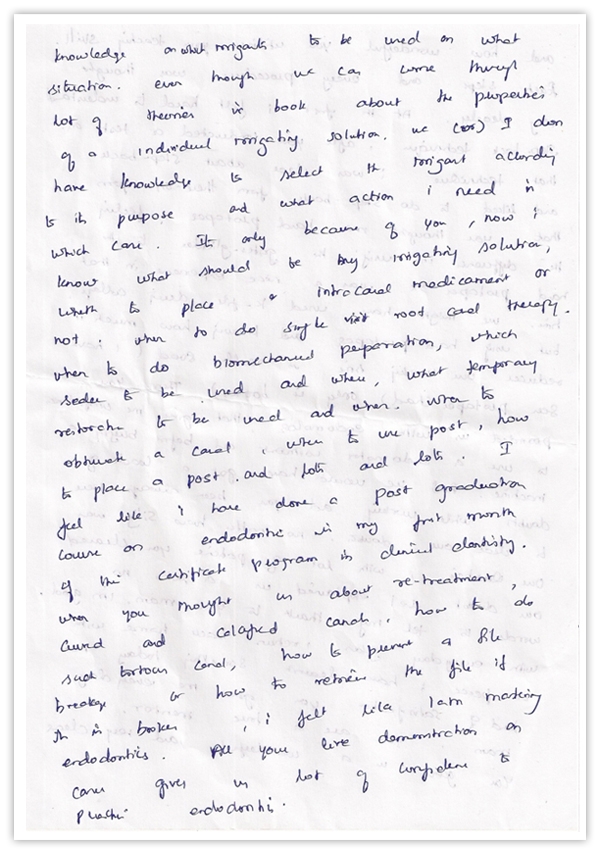 knowledge on what irrigants to be used on what
situation. even though we can come through
lot of theories in book about the properties
of a individual irrigating solution. we (or) I don
have knowledge to select the irrigant according
to its purpose and what action i need in
which case. Its only because of you, now i
know what should be my irrigating solution,
wheth to place a intracanal medicament or
not. when to do single visit root canal therapy.
when to do biomechanical preparation, which
sealer to be used and when, what temporary
restoratn to be used and when. when to
obturate a canal. when to use post, how
to place a post. and lots and lots. I
feel like i have done a post graduation
course on endodontic in my first month
of this certificate program in clinical dentistry.
when you thought us about re-treatment,
curved and calcified canals. how to do
such tortous canal, how to prevent a file
breakage or how to retrieve the file if
th is broken, i felt like I am mastering
endodontics. All your live demonstration on
cases gives us lot of confidence to
practice endodontics.